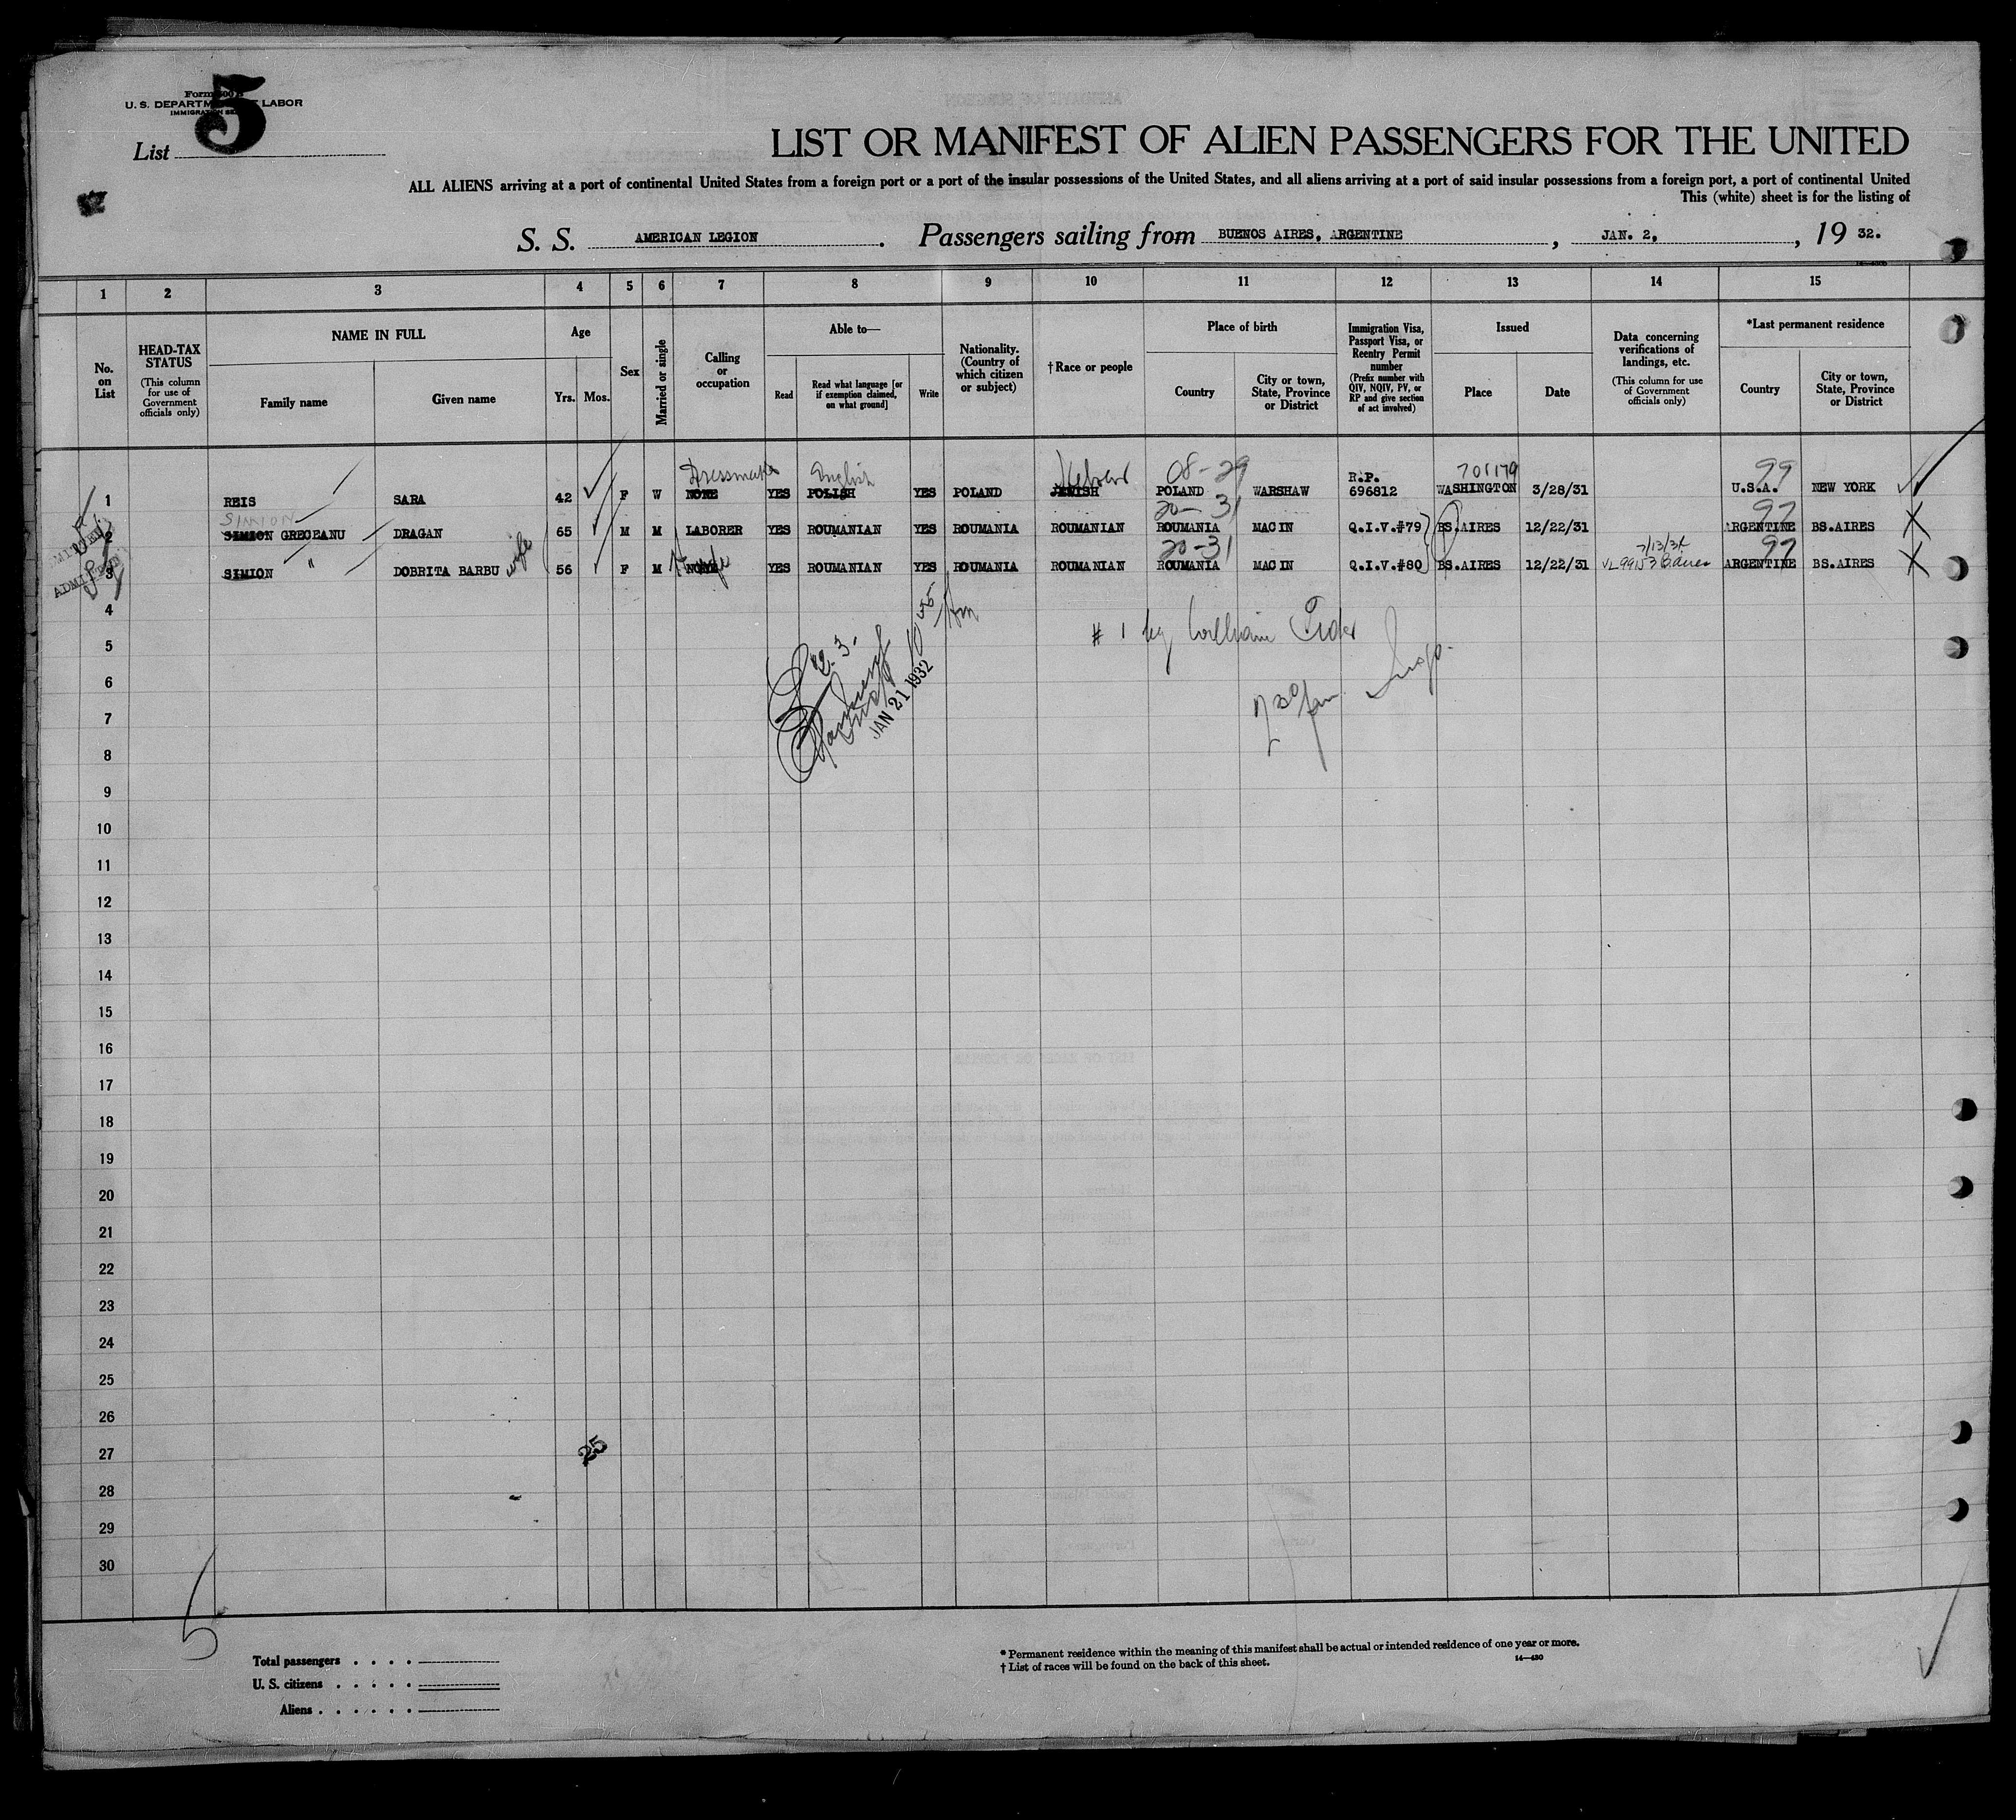 Form 500 B
U. S. DEPARTMENT OF LABOR
IMMIGRATION SERVICE
5
List
LIST OR MANIFEST OF ALIEN PASSENGERS FOR THE UNITED
ALL ALIENS arriving at a port of continental United States from a foreign port or a port of the insular possessions of the United States, and all aliens arriving at a port of said insular possessions from a foreign port, a port of continental United
This (white) sheet is for the listing of
S. S. AMERICAN LEGION . Passengers sailing from BUENOS AIRES, ARGENTINE , JAN. 2, , 19 32.
1 2 3 4 5 6 7 8 9 10 11 12 13 14 15
No. on List
HEAD-TAX STATUS
(This column for use of Government officials only)
NAME IN FULL
Family name
Given name
Age
Yrs. Mos.
Sex
Married or single
Calling or occupation
Able to—
Read
Read what language [or if exemption claimed, on what ground]
Write
Nationality. (Country of which citizen or subject)
† Race or people
Place of birth
Country
City or town, State, Province or District
Immigration Visa, Passport Visa, or Reentry Permit number
(Prefix number with QIV, NQIV, PV, or RP and give section of act involved)
Issued
Place
Date
Data concerning verifications of landings, etc.
(This column for use of Government officials only)
*Last permanent residence
Country
City or town, State, Province or District
Dressmaker English Hebrew 08-29 R.P. 701179 99
1 REIS SARA 42 F W NONE YES POLISH YES POLAND JEWISH POLAND WARSHAW 696812 WASHINGTON 3/28/31 U.S.A. NEW YORK
SIMION 20-31 97
2 SIMION GREGEANU DRAGAN 65 M M LABORER YES ROUMANIAN YES ROUMANIA ROUMANIAN ROUMANIA MACIN Q.I.V.#79 BS.AIRES 12/22/31 ARGENTINE BS.AIRES
20-31 97
3 SIMION " DOBRITA BARBU wife 56 F M NONE YES ROUMANIAN YES ROUMANIA ROUMANIAN ROUMANIA MACIN Q.I.V.#80 BS.AIRES 12/22/31 ARGENTINE BS.AIRES
ADMITTED
4
5
# 1 by William
6
7
JAN 21 1932
8
9
10
11
12
13
14
15
16
17
18
19
20
21
22
23
24
25
26
27
25
28
29
30
5
Total passengers . . . .
U. S. citizens . . . . .
Aliens . . . . . .
* Permanent residence within the meaning of this manifest shall be actual or intended residence of one year or more.
† List of races will be found on the back of this sheet.
14—430